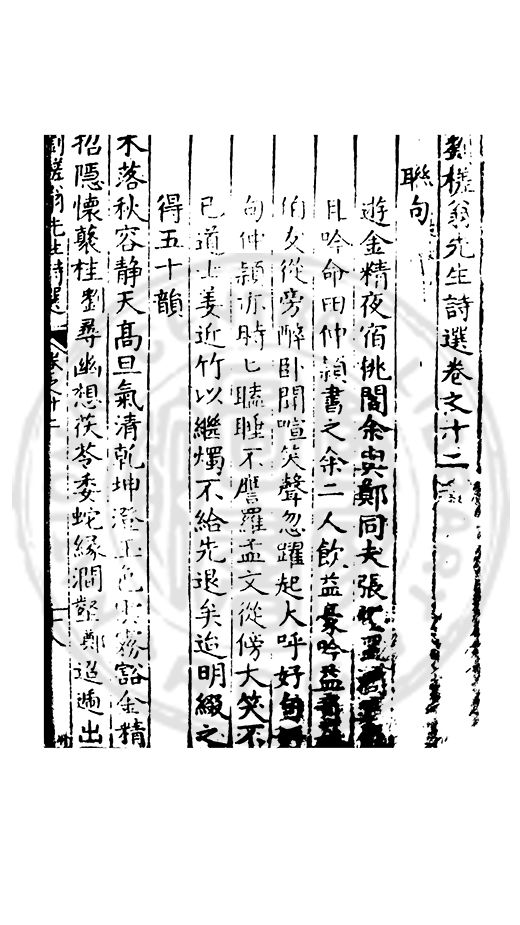 劉槎翁先生詩選卷之十二
聯句
遊金精夜宿佻閣余與鄭同夫張
且吟命田仲潁書之余二人飲益豪吟益
伯友從旁醉卧聞喧笑聲忽躍起大呼好句
句仲潁亦時匕瞌睡不譍羅孟文從傍大笑不
已道士姜近竹以繼燭不給先退矣迨明綴之
得五十韻
木落秋容静天髙旦氣清乾坤澄 色 霧豁金精
招隱懷叢桂劉尋幽想茯苓委蛇緣澗壑鄭迢遞出
劉槎翁先生詩選 卷之十二